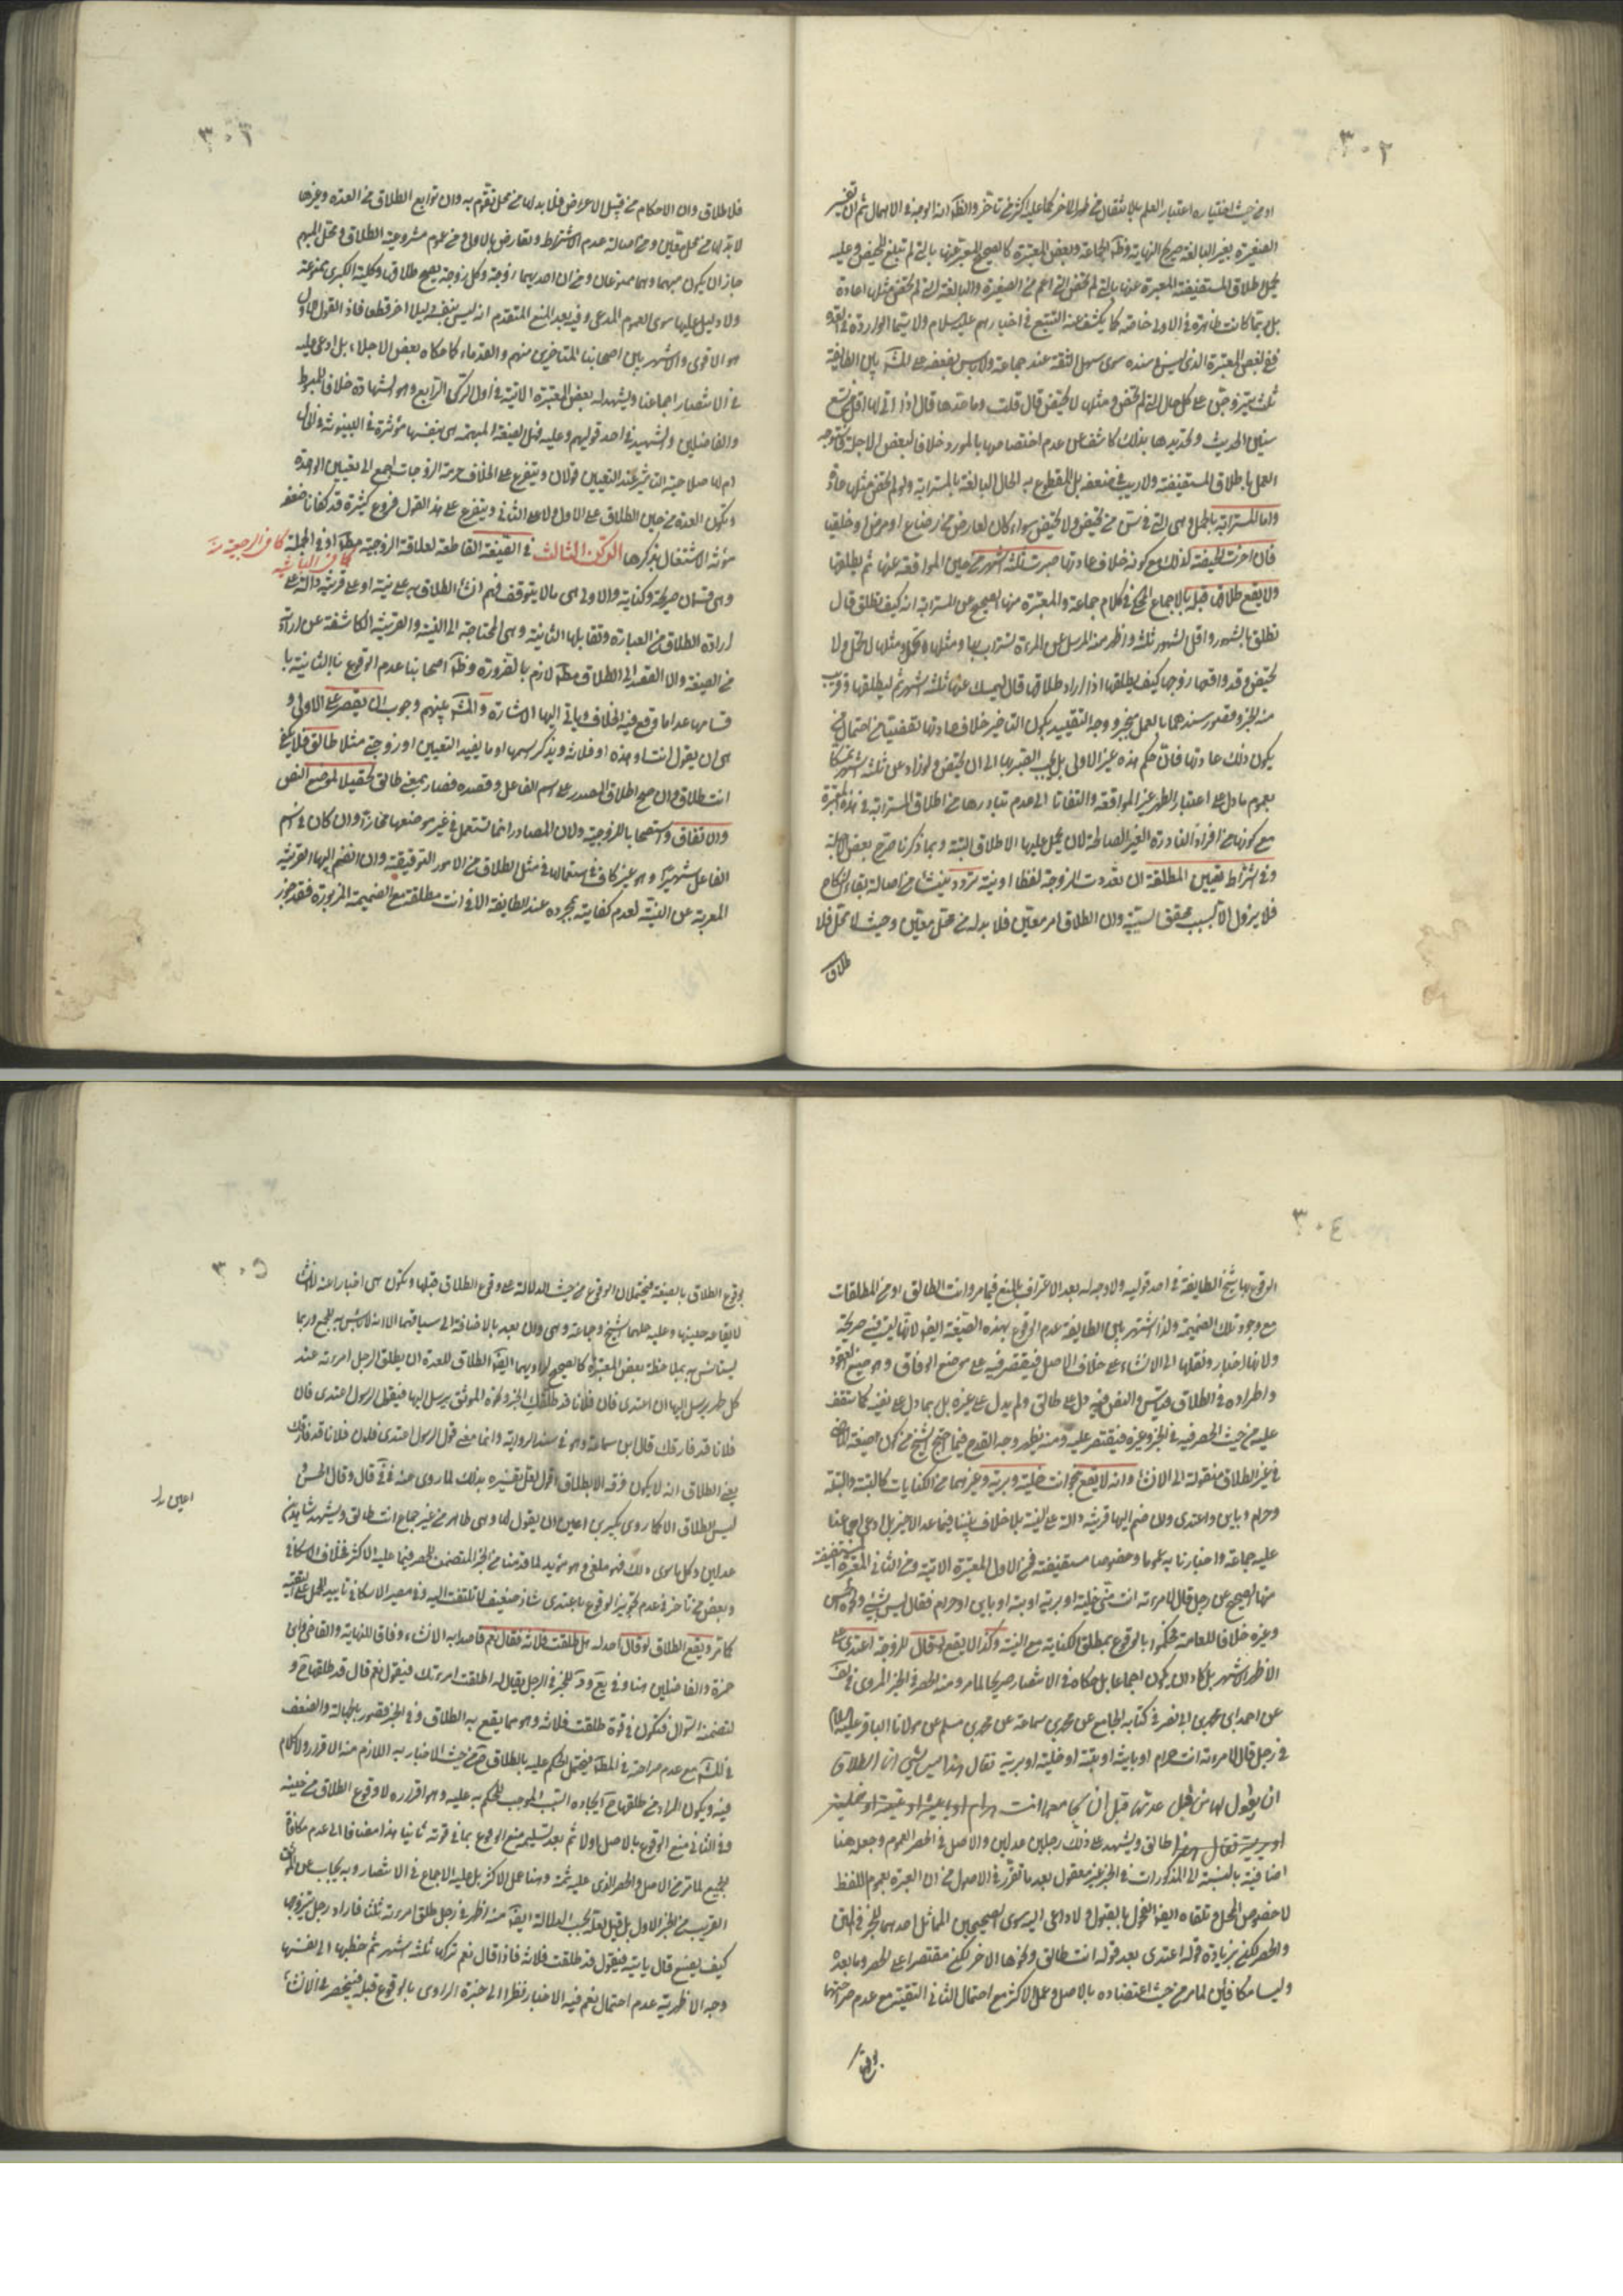 ٣٠٢
او من حيث اختياره اعتبار العلم بالانتقال من طهر الاخر كما عليه اكثر من تاخر والظ انه الوجه في الاهمال ثم ان تفسير
الصغيرة بغير البالغة صريح النهاية وظ الجماعة وبعض المعتبرة كالصحيح المعبر عنها بالتي لم تبلغ المحيض وعليه
يحمل اطلاق المستفيضة المعبرة عنها بالتي لم تحض التي اعم من الصغيرة والبالغة التي لم تحض مثلها عادة
بل ربما كانت ظاهرة في الاولى خاصة كما يكشف عنه التتبع في اخبارهم عليهم السلام ولا سيما الواردة في العدة
ففي بعض المعتبرة الذي ليس في سنده سوى سهل الثقة عند جماعة ولا باس بضعفه على المش بين الطايفة
ثلث يتزوجن على كل حال التي لم تحض ومثلها لا تحيض قال قلت وما حدها قال اذا اتى لها اقل من تسع
سنين الحديث وتحديدها بذلك كاشف عن عدم اختصاصها بالمورد خلافا لبعض الاجلة
العمل باطلاق المستفيضة ولا ريب في ضعفه بل المقطوع به الحاق البالغة بالمسترابة ولو لم تحض مثلها عادة
واما المسترابة بالحمل وهي التي في سن من تحيض ولا تحيض سواء كان لعارض من رضاع او مرض او خلقيا
فان اخرت الحيضة لذلك مع كونه خلاف عادتها صبرت ثلثة اشهر من حين المواقعة عنها ثم يطلقها
ولا يقع طلاقها قبله بالاجماع المحكي في كلام جماعة والمعتبرة منها الصحيح عن المسترابة انه كيف تطلق قال
تطلق بالشهور واقل الشهور ثلثة واظهر منه المرسل عن المرءة يستراب بها ومثلها تحمل ومثلها لا تحمل ولا
تحيض وقد واقعها زوجها كيف يطلقها اذا اراد طلاقها قال ليمسك عنها ثلثة اشهر ثم ليطلقها وقريب
منه الخبر وقصور سندهما بالعمل منجبر ووجه التقييد بكون التاخير خلاف عادتها
يكون ذلك عادتها فان حكم هذه غير الاولى بل يجب الصبر بها الى ان تحيض ولو زاد على ثلثة اشهر تمسكا
بعموم ما دل على اعتبار الطهر غير المواقعة والتفاتا الى عدم تبادرها من اطلاق المسترابة في هذه المعتبرة
مع كونها من افراد النادرة الغير الصالحة لان يحمل عليها الاطلاق البتة وبما ذكرنا صرح بعض الاجلة
وفي اشتراط تعيين المطلقة ان تعددت الزوجة لفظا او نية تردد ينشأ من اصالة بقاء النكاح
فلا يزول الا بسبب محقق السببية وان الطلاق امر معين فلا بد له من محل معين وحيث لا محل فلا
طلاق
٣٠٣
فلا طلاق وان الاحكام من قبيل الاعراض فلا بد لها من محل تقوم به وان توابع الطلاق من العدة وغيرها
لا بد لها من محل معين ومن اصالة عدم الاشتراط وتعارض بالاول ومن عموم مشروعية الطلاق ومحل المبهم
جاز ان يكون مبهما وهما ممنوعان ومن ان احديهما زوجة وكل زوجة يصح طلاقها وكلية الكبرى ممنوعة
ولا دليل عليها سوى العموم المدعى وفيه بعد المنع المتقدم انه ليس بنفسه دليلا اخر قطعا فاذ القول الاول
هو الاقوى والاشهر بين اصحابنا المتاخرين منهم والقدماء كما حكاه بعض الاجلاء بل ادعى عليه
في الانتصار اجماعنا ويشهد له بعض المعتبرة الاتية في اول الركن الرابع وهو الشهادة خلافا للمبسوط
والفاضلين والشهيد في احد قوليهم وعليه فهل الصيغة المبهمة هي بنفسها مؤثرة في البينونة في الحال
ام لها صلاحية التاثير عند التعيين قولان ويتفرع على الخلاف حرمة الزوجات اجمع الى تعيين الواحدة
وتكون العدة من حين الطلاق على الاول ولا على الثاني ويتفرع على هذا القول فروع كثيرة قد كفانا ضعفه
مؤنة الاشتغال بذكرها الركن الثالث في الصيغة القاطعة لعلاقة الزوجية مط او في الجملة كما في الرجعية منه
كما في الباينة
وهي قسمان صريحة وكناية والاولى هي ما لا يتوقف فهم انشاء الطلاق به على نية او على قرينة دالة على
ارادة الطلاق من العبارة وتقابلها الثانية وهي المحتاجة الى النية والقرينة الكاشفة عن ارادته
من الصيغة والا القصد الى الطلاق مط لازم بالضرورة وظ اصحابنا عدم الوقوع بالثانية با
قسامها عدا ما وقع فيه الخلاف وياتي اليها الاشارة والمش بينهم وجوب ان يقتصر على الاولى و
هي ان يقول انت او هذه او فلانة ويذكر اسمها او ما يفيد التعيين او زوجتي مثلا طالق فلا يكفي
انت طلاق وان صح اطلاق المصدر على اسم الفاعل وقصده فصار بمعنى طالق تحصيلا لموضع النص
والاتفاق واستصحابا للزوجية ولان المصادر انما تستعمل في غير موضعها مجازا وان كان في اسم
الفاعل شهيرا وهو غير كاف في استعمالها في مثل الطلاق من الامور التوقيفية وان انضم اليها القرينة
المعربة عن النية لعدم كفايته بمجرده عند الطايفة الا في انت مطلقة مع الضميمة المزبورة فقد جوز
٣٠٤
الوقوع بها شيخ الطايفة في احد قوليه ولا وجه له بعد الاعتراف بالمنع فيما مر وانت الطالق او من المطلقات
مع وجود تلك الضميمة ولذا اشتهر بين الطايفة عدم الوقوع بهذه الصيغة ايض لانها ليست فيه صريحة
ولانها اخبار ونقلها الى الانشاء على خلاف الاصل فيقتصر فيه على موضع الوفاق وهو صيغ العقود
واطراده في الطلاق قياس والنص فيه دل على طالق ولم يدل على غيره بل بما دل على نفيه كما ستقف
عليه من حيث الحصر فيه في الخبر وغيره فيقتصر عليه ومنه يظهر وجه القدح فيما احتج الشيخ من كون صيغة الماضي
في غير الطلاق منقولة الى الانشاء وانه لا يقع بنحو انت خلية وبرية وغيرهما من الكنايات كالبتة والبتلة
وحرام وباين واعتدي وان ضم اليها قرينة دالة على النية بلا خلاف بيننا فيما عد الاخير بل ادعى اجماعنا
عليه جماعة واخبارنا به عموما وخصوصا مستفيضة فمن الاول المعتبرة الاتية ومن الثاني المعتبرة المستفيضة
منها الصحيح عن رجل قال لامرءته انت مني خلية او برية او بتة او باين او حرام فقال ليس بشيء ونحوه الحسن
وغيره خلافا للعامة فحكموا بالوقوع بمطلق الكناية مع النية وكذا لا يقع لو قال للزوجة اعتدي على
الاظهر الاشهر بل كاد ان يكون اجماعا بل حكاه في الانتصار صريحا لما مر ومنه الحصر في الخبر المروي في لف
عن احمد ابن محمد بن ابي نصر في كتابه الجامع عن محمد بن سماعة عن محمد بن مسلم عن مولانا الباقر عليه السلام
في رجل قال لامرءته انت حرام او باينة او بتة او خلية او برية فقال هذا ليس بشيء انما الطلاق
ان يقول لها من قبل عدتها قبل ان يجامعها انت حرام او باينة او بتة او خلية
او برية فقال هذا طالق ويشهد على ذلك رجلين عدلين والاصل في الحصر العموم وجعله هنا
اضافية بالنسبة الى المذكورات في الخبر غير معقول بعد ما تقرر في الاصول من ان العبرة بعموم اللفظ
لا خصوص المحل وتلقاه ايض الفحول بالقبول ولا داعي اليه سوى الصحيحين المماثل احدهما للخبر في المتن
والحصر لكن بزيادة قوله اعتدي بعد قوله انت طالق ونحوها الاخر لكن مقتصرا على الحصر وما بعده
وليسا مكافئين لما مر من حيث اعتضاده بالاصل وعمل الاكثر مع احتمال الثاني التقية مع عدم صراحتهما
٣٠٥
بوقوع الطلاق بالصيغة فيحتملان الوقوع من حيث الدلالة على وقوع الطلاق قبلها وتكون هي اخبارا عنه لا انشاء
لايقاعه حينها وعليه حملهما الشيخ وجماعة وهي وان بعد بالاضافة الى سياقهما الا انه لا باس به للجمع وربما
يستانس به بملاحظة بعض المعتبرة كالصحيح لراويهما ايض الطلاق للعدة ان يطلق الرجل امرءته عند
كل طهر يرسل اليها ان اعتدي فان فلانا قد طلقك الخبر ونحوه الموثق يرسل اليها فيقول الرسول اعتدي فان
فلانا قد فارقك قال ابن سماعة وهو في سند الرواية وانما معنى قول الرسول اعتدي فان فلانا قد فارقك
يعني الطلاق انه لا يكون فرقة الا بطلاق اقول لعل تفسيره بذلك لما روي عنه في في قال وقال الحسن
ليس الطلاق الا كما روى بكير بن اعين ان يقول لها وهي طاهر من غير جماع انت طالق ويشهد شاهدين
اعين
عدلين وكل ما سوى ذلك فهو ملغى وهو مؤيد لما قدمنا من الخبر المتضمن للحصر فيما عليه الاكثر فخلاف الاسكافي
وبعض من تاخر في عدم تجويز الوقوع باعتدي شاذ ضعيف لا يلتفت اليه وفي مصير الاسكافي تاييد للحمل على التقية
كما مر ويقع الطلاق لو قال احد له هل طلقت فلانة فقال نعم قاصدا به الانشاء وفاقا للنهاية والقاضي وابن
حمزة والفاضلين هنا وفي يع ود للخبر في الرجل يقال له اطلقت امرءتك فيقول نعم قال قد طلقها ح و
لتضمنه السؤال فتكون في قوة طلقت فلانة وهو مما يقع به الطلاق وفي الخبر قصور بالجهالة والضعف
في المش مع عدم صراحة في المط فيحتمل الحكم عليه بالطلاق ح من حيث الاخبار به اللازم منه الاقرار ولا كلام
فيه ويكون المراد من طلقها ح ايجاده السبب الموجب للحكم به عليه وهو اقراره لا وقوع الطلاق من حينه
وفي الثاني منع الوقوع بالاصل اولا ثم بعد تسليمه منع الوقوع بما في قوته ثانيا هذا مضافا الى عدم مكافاة
الجميع لما مر من الاصل والحصر الذي عليه ثمة وهنا عمل الاكثر بل عليه الاجماع في الانتصار وبه يجاب عن الموثق
القريب من الخبر الاول بل قيل لعله بحسب الدلالة ايض منه اظهر في رجل طلق امرءته ثلثا فاراد رجل يتزوجها
كيف يصنع قال ياتيه فيقول قد طلقت فلانة فاذا قال نعم تركها ثلثة اشهر ثم خطبها الى نفسها
وجه الاظهرية عدم احتمال نعم فيه الاخبار نظرا الى خبرة الراوي بالوقوع قبله فينحصر في الانشاء